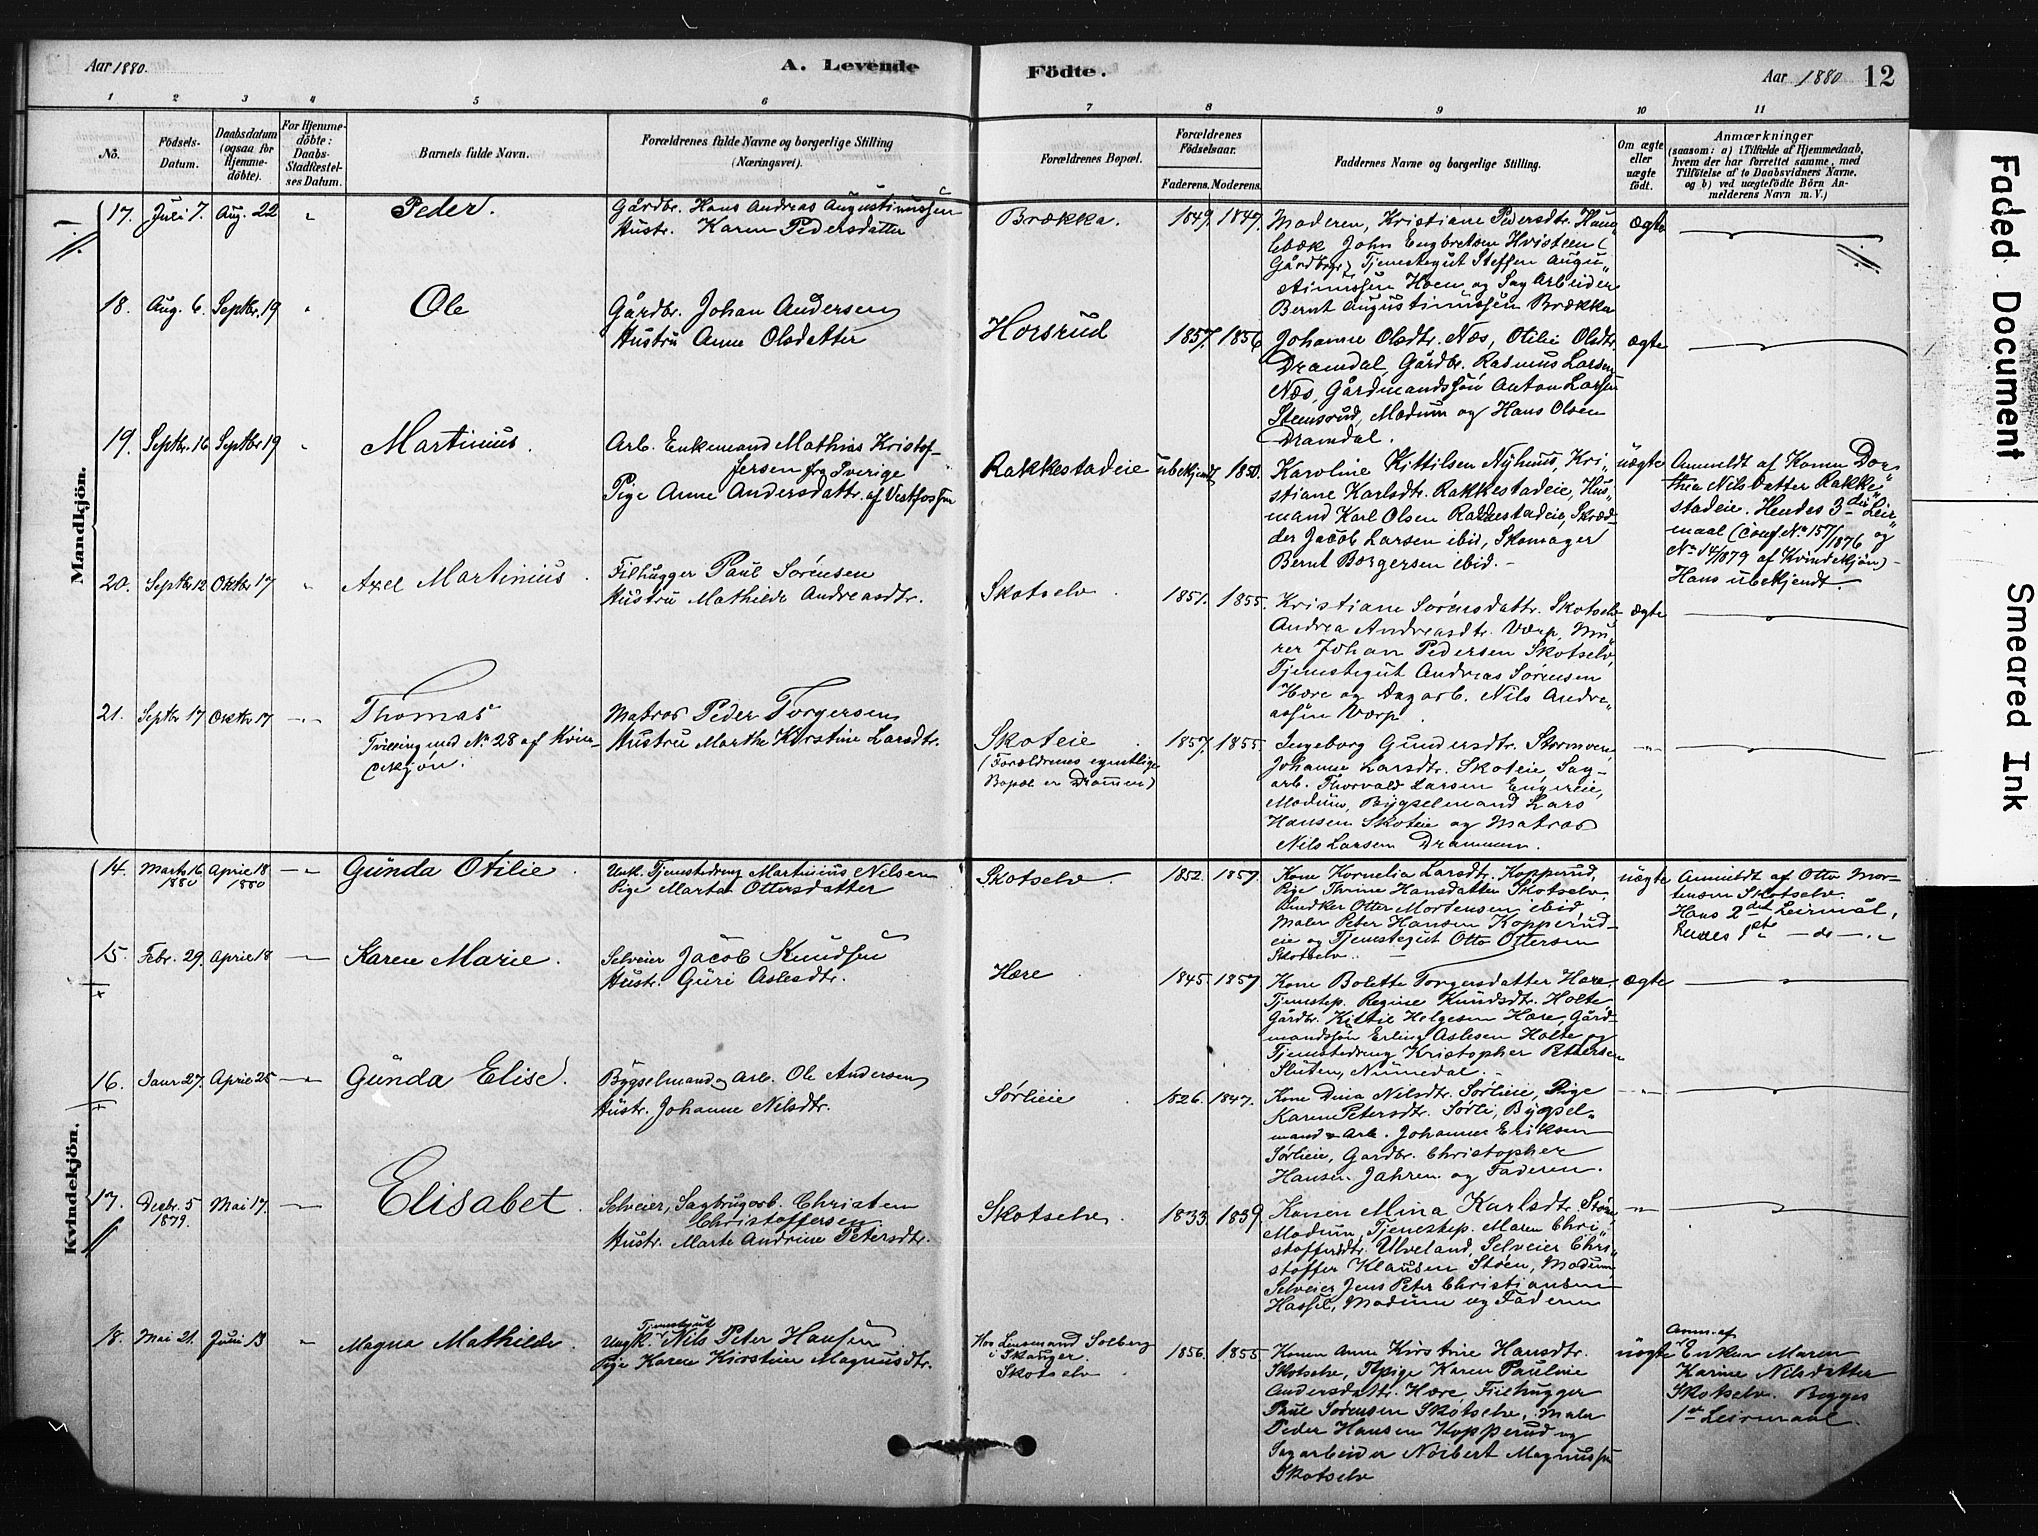 Aar 1880.
A. Levende Födte.
Aar 1880
12
1 2 3 4 5 6 7 8 9 10 11
No.
Födsels-Datum.
Daabsdatum (ogsaa for Hjemme-döbte).
For Hjemme-döbte: Daabs-Stadfæstel-ses Datum.
Barnets fulde Navn.
Forældrenes fulde Navne og borgerlige Stilling (Næringsvei).
Forældrenes Bopæl.
Forældrenes Födselsaar.
Faderens. Moderens.
Faddernes Navne og borgerlige Stilling.
Om ægte eller uægte födt.
Anmærkninger
(saasom: a) i Tilfælde af Hjemmedaab, hvem der har forrettet samme, med Tilföielse af to Daabsvidners Navne, og b) ved uægtefödte Börn An-melderens Navn m. V.)
Mandkjön.
17. Juli 7. Aug. 22 " Peder.
Gårdbr. Hans Andreas Augustinussen
Hustr. Karen Pedersdatter
Brækka.
1849. 1847.
Moderen, Kristiane Pedersdtr. Haug
lebæk John Engbretsen Hvisteen (
Gårdbrgr) Tjenestegut Steffen Augu„
stinussen Hoen og Sag Arbeider
Bernt Augustinussen Brækka
ægte
18. Aug. 6. Septbr. 19 " Ole
Gårdbr. Johan Andersen
Hustru Anne Olsdatter
Horsrud
1857. 1856
Johanne Olsdtr. Næs, Otilie Olsdtr.
Dramdal, Gårdbr. Rasmus Larsen
Næs, Gårdmandssön Anton Larsen
Stensrud, Modum og Hans Olsen
Dramdal.
ægte
19. Septbr. 16 Septbr. 19 " Martinius.
Arb. Enkemand Mathias Kristof-
fersen fra Sverige
Pige Anne Andersdattr. af Vestfossen
Rakkestadeie
ubekjendt 1850.
Karoline Kittilsen Nyhuus, Kri„
stiane Karlsdtr. Rakkestadeie, Hus„
mand Karl Olsen Rakkestadeie, Skræd-
der Jacob Larsen ibid, Skomager
Bernt Borgersen ibid. -
uægte
Anmeldt af Konen Dor„
thea Nilsdatter Rakke„
stadeie. Hendes 3die Leir„
maal (conf No 157/1876 og
No 14/1879 af Kvindekjön) -
Hans ubekjendt.
20. Septbr. 12 Oktbr. 17 " Axel Martinius.
Filhugger Paul Sørensen
Hustru Mathilde Andreasdtr.
Skotselv.
1851. 1855.
Kristiane Sørensdattr. Skotselv
Andrea Andreasdtr. Værp, Mu„
rer Johan Pedersen Skotselv,
Tjenestegut Andreas Sørensen
Hære og Sagarb. Nils Andre„
assen Værp
ægte
21. Septbr 17 Oktbr. 17 Thomas
Tvilling med No 28 af Kvin-
dekjön.
Matros Peder Torgersen
Hustru Marthe Kirstine Larsdtr.
Skoteie
(Forældrenes egentlige
Bopæl er Drammen)
1857. 1855.
Ingeborg Gundersdtr. Stormoen,
Johanne Larsdtr. Skoteie, Sag-
arb. Thorvald Larsen Engereie,
Modum, Bygselmand Lars
Hansen Skoteie og Matros
Nils Larsen Drammen.
Kvindekjön.
14. Marts 16 1880 April 18 1880 Gunda Otilie.
Unk. Tjenestedreng Martinius Nilsen
Pige Marta Ottersdatter
Skotselv.
1852. 1857.
Kone Kornelia Larsdtr. Kopperud,
Pige Thrine Hansdatter Skotselv,
Otter Mortensen ibid
Maler Peter Hansen Kopperud-
eie og Tjenestegut Otto Ottersen
Skotselv.
uægte
Anmeldt af Otto Mor-
tensen Skotselv.
Hans 2det Leirmål,
Hendes 1ste — do —"
15. Febr. 29. April 18 Karen Marie.
Selveier Jacob Knudsen
Hustr. Guri Aslesdtr.
Hære
1845. 1857
Kone Bolette Torgersdatter Hære,
Tjenestep. Regine Knudsdtr. Holte,
Gårdbr. Kittil Helgesen Hære, Gård-
mandssön Erling Aslesen Holte og
Tjenestedreng Kristopher Pettersen
Sluten, Numedal.
ægte
16. Janr 27. April 25 Gunda Elise.
Bygselmand & Arb. Ole Andersen
Hustr. Johanne Nilsdtr.
Sørlieie
1826. 1847.
Kone Dina Nilsdtr. Sørlieie, Pige
Karen Petersdtr. Sørli, Bygsel„
mand & Arb. Johannes Eriksen
Sørlieie, Gardbr. Christopher
Hansen Jahren og Faderen.
17. Decbr. 5 1879. Mai 17. Elisabet.
Selveier, Sagbrugarb. Christen
Christoffersen
Hustr. Marte Andrine Petersdtr.
Skotselv.
1833. 1839.
Konen Mina Karlsdtr. Støen,
Modum, Tjenestep. Maren Chri„
stoffersdtr. Ulveland, Selveier Chri„
stoffer Klausen Støen, Modum,
Selveier Jens Peter Christiansen
Hassel, Modum og Faderen
18. Mai 21. Juni 13 " Magna Mathilde.
Tjenestegut
Ungk. Nils Peter Hansen
Pige Karen Kirstine Magnusdtr.
Hos Lensmand Solberg
i Skanger.
Skotselv
1856. 1855.
Konen Anne Kirstine Hansdtr.
Skotselv, Tpige Karen Pauline
Andersdattr. Hære Filhugger
Paul Sørensen Skotselv, Maler
Peder Hansen Kopperud og
Sagarbeider Norbert Magnussen
Skotselv
uægte
Anm. af
Enken Maren
Karine Nilsdatter
Skotselv. Begges
1ste Leirmaal.
Faded Document
Smeared Ink